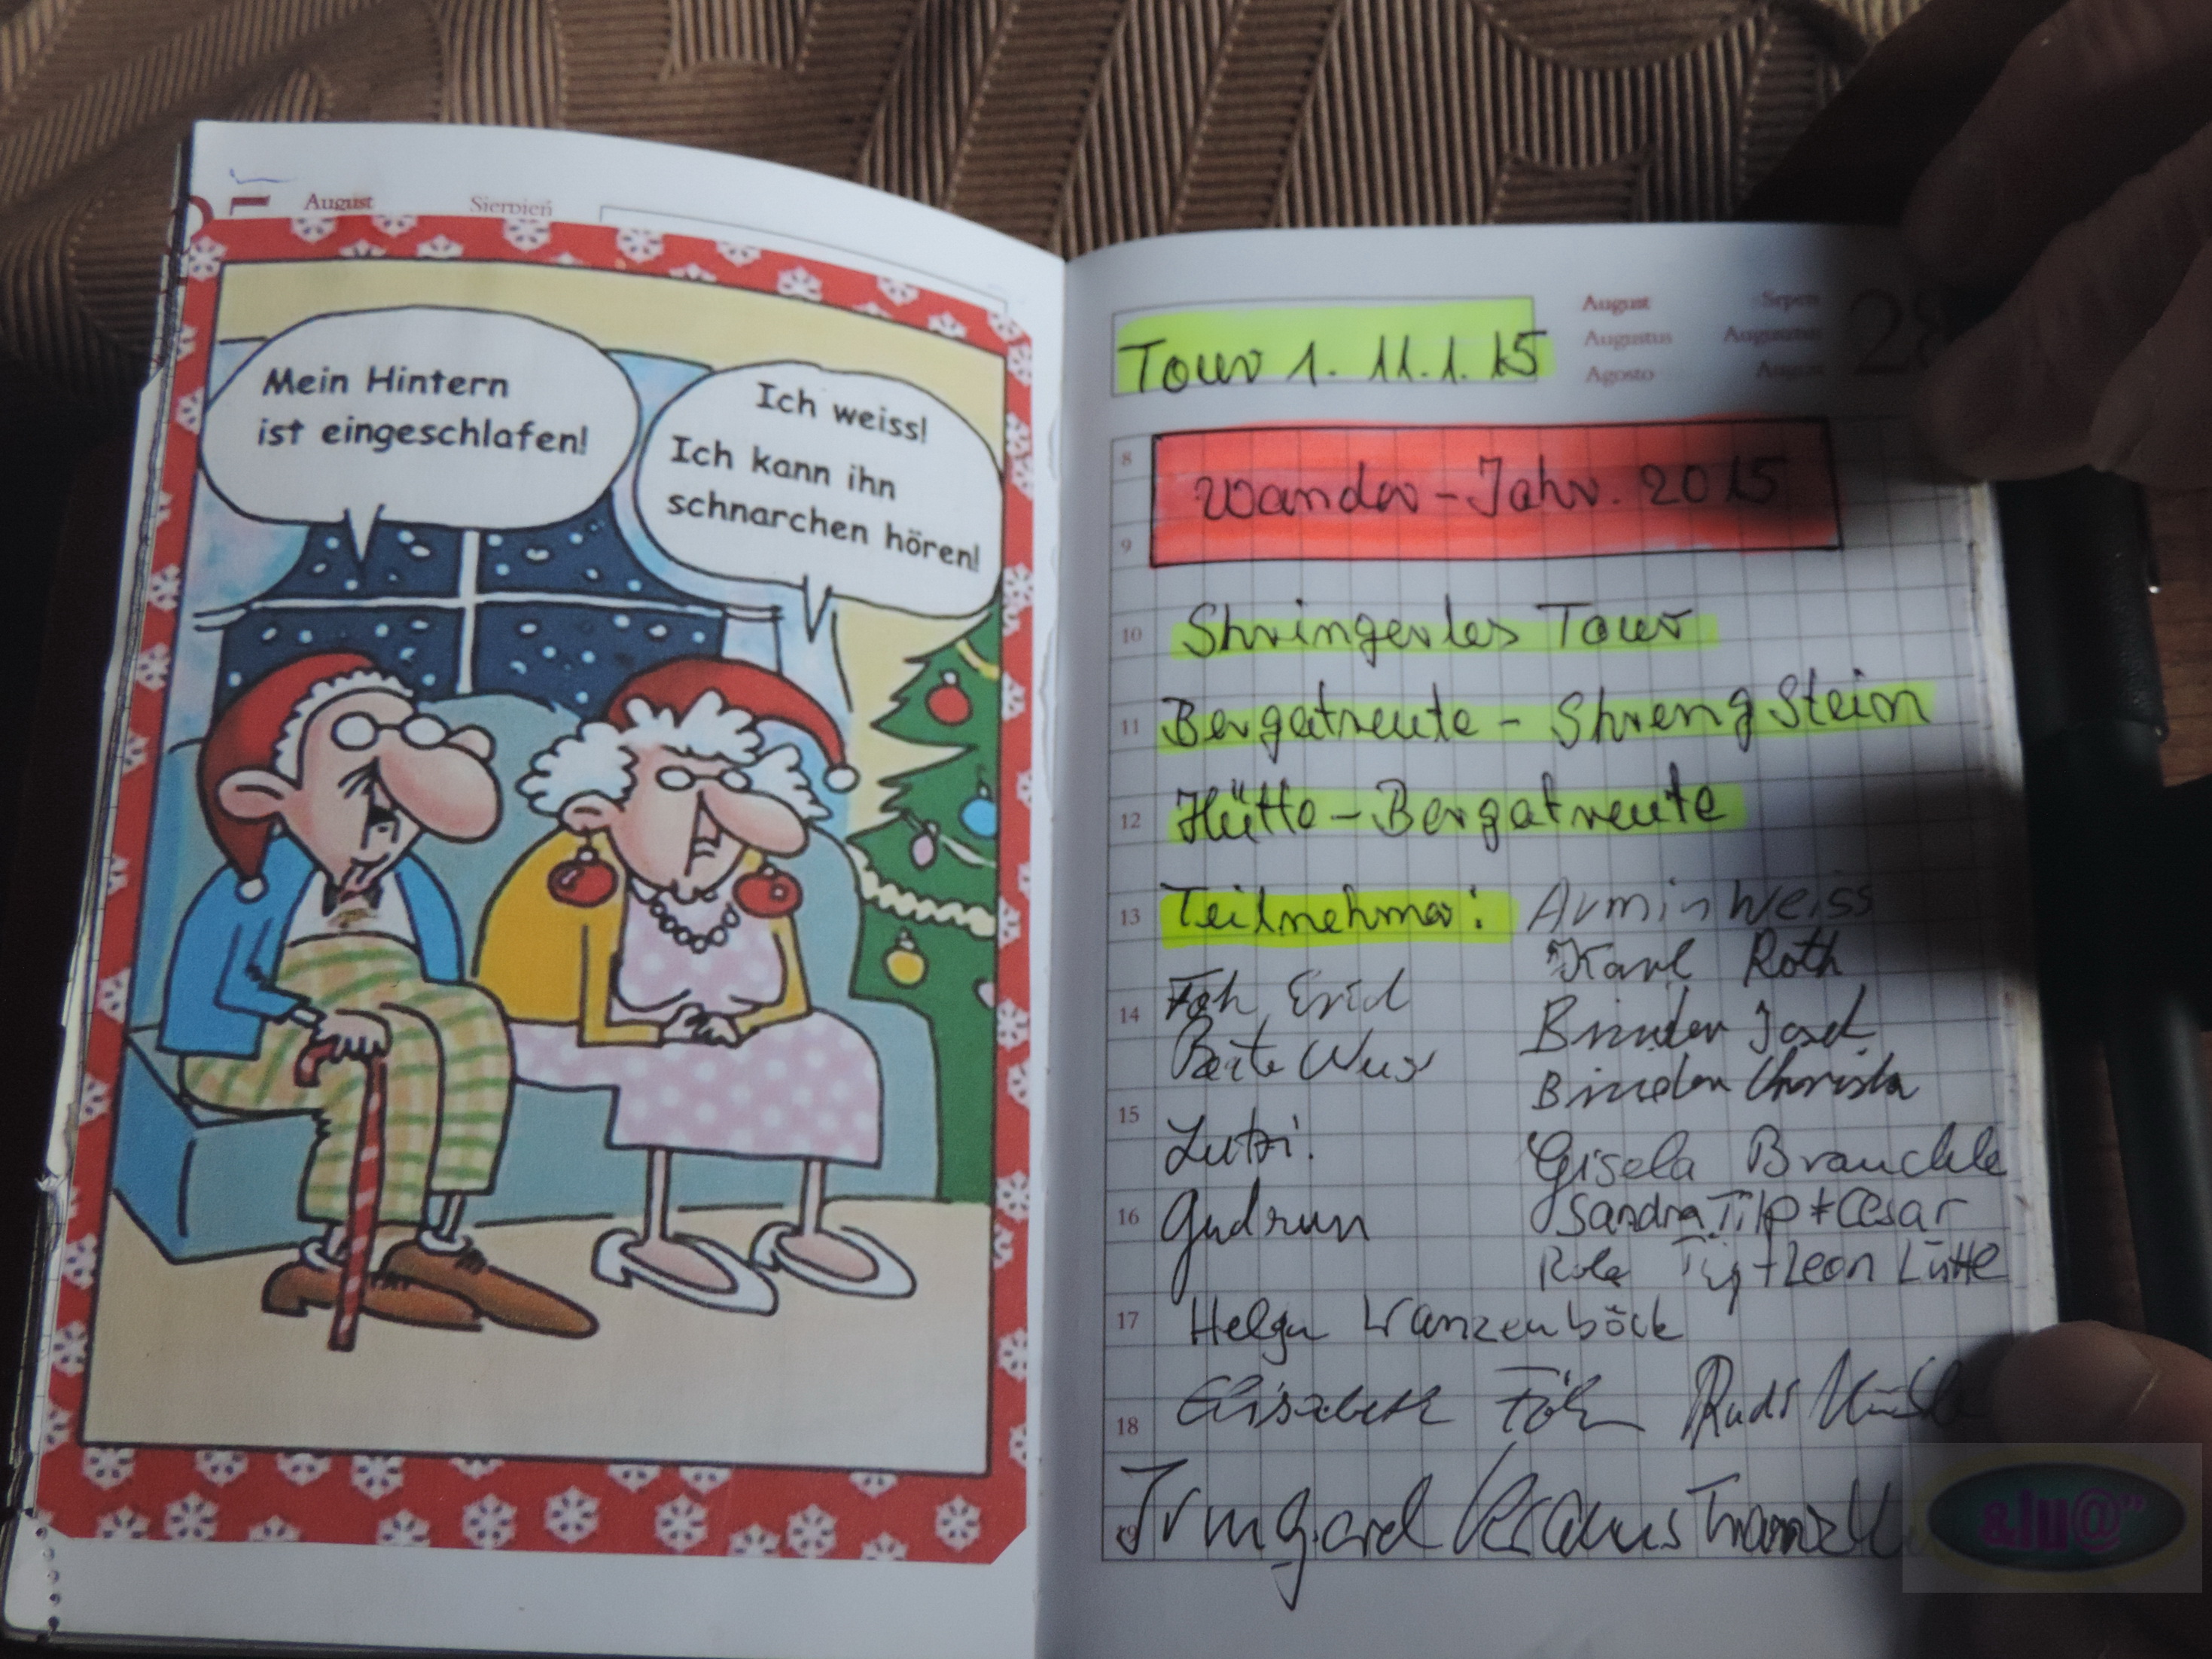 August Sierpień
Mein Hintern
ist eingeschlafen!
Ich weiss!
Ich kann ihn
schnarchen hören!
August Srpen
Augustus Augusztus
Agosto August
28
Tour 1. 11.1.15
8
Wander-Jahr. 2015
9
10 Shringerles Tour
11 Bergatreute - Shreng Stein
12 Hütte - Bergatreute
13 Teilnehmer: Armin Weiss
Karl Roth
14
Binder Josef
Binder Christa
15
Lutzi.
Gisela Brauchle
16 Gudrun
Sandra Tilp + Cesar
+ Leon Lütte
17 Helga Wanzenböck
18 Elisabeth Föh Rudi
19 Irmgard Franz
&lu@"